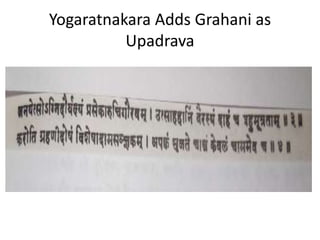 Yogaratnakara Adds Grahani as
Upadrava
जनयेत्सोऽग्निदौर्बल्यं प्रसेकारुचिगौरवम् । उत्साहहानिं वैरस्यं दाहं च बहुमूत्रताम् ॥ ३ ॥
करोति ग्रहणीदोषं विशेषादामसञ्ज्ञकम् । अपक्वं सृजते चान्नं केवलं चाममेव च ॥ ४ ॥